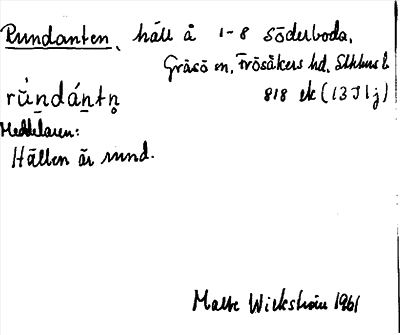 Rundanten, häll å 1-8 Söderboda,
Gräsö sn, Frösåkers hd, Sthlms l.
rúndántn̥ 818 ek (13J1j)
Meddelaren:
Hällen är rund.
Malte Wickström 1961